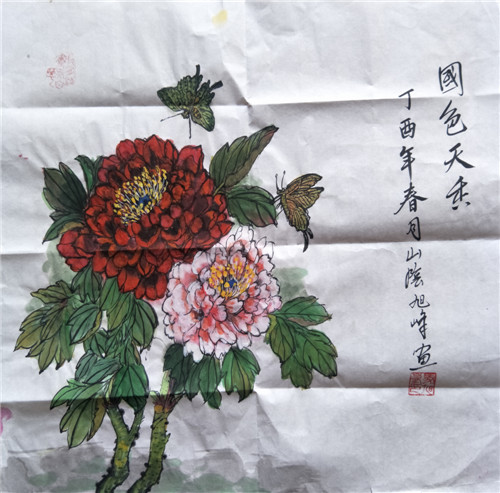 國色天香
丁酉年春月山陰旭峰画